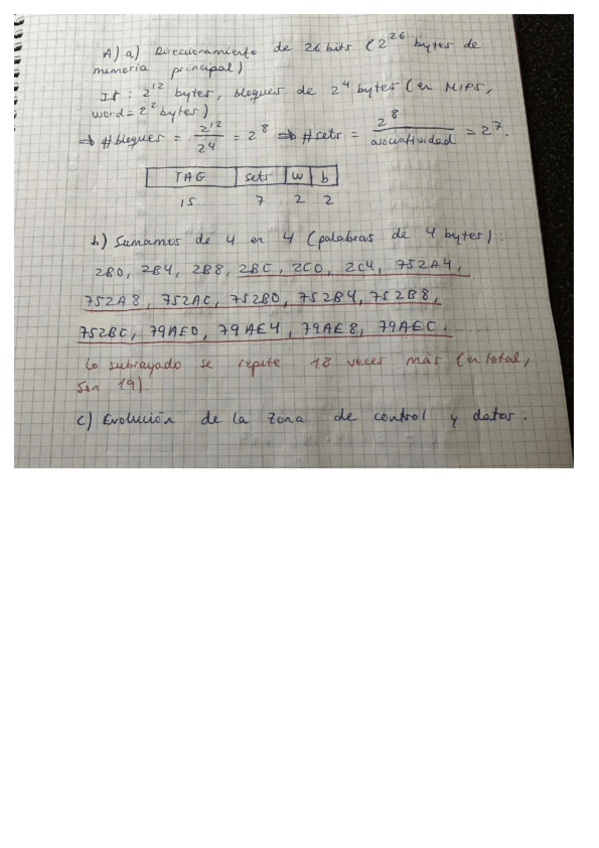 A) a) Direccionamiento de 26 bits (2^26 bytes de
memoria principal)
I$: 2^12 bytes, bloques de 2^4 bytes (en MIPS,
word = 2^2 bytes)
⇒ #bloques = 2^12 / 2^4 = 2^8 ⇒ #sets = 2^8 / asociatividad = 2^7.
TAG sets w b
15 7 2 2
b) Sumamos de 4 en 4 (palabras de 4 bytes):
2B0, 2B4, 2B8, 2BC, 2C0, 2C4, 752A4,
752A8, 752AC, 752B0, 752B4, 752B8,
752BC, 79AE0, 79AE4, 79AE8, 79AEC.
Lo subrayado se repite 18 veces más (en total,
son 19)
c) Evolución de la zona de control y datos: